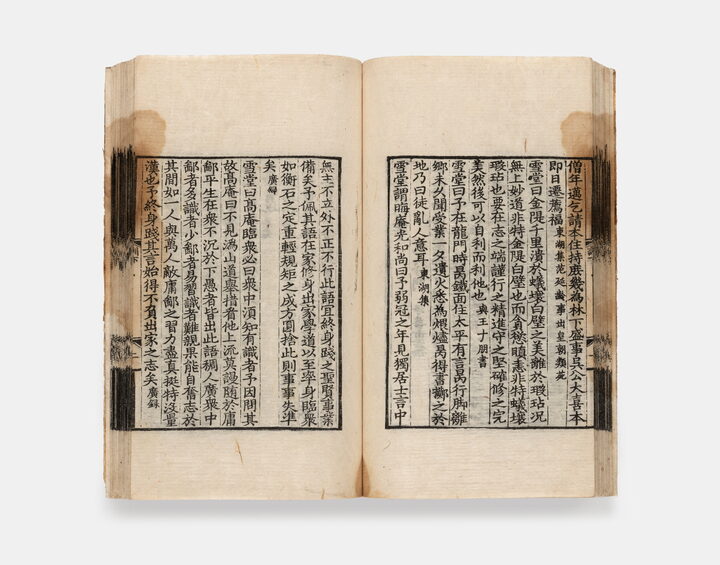 僧年邁乞請本住持庶幾為林下盛事呉公大喜本
即日遷薦福 東湖集范延齡事出皇朝類苑
雪堂曰金隄千里潰於蟻壤白璧之美離於瑕玷況
無上妙道非特金隄白璧也而貪慾瞋恚非特蟻壤
瑕玷也要在志之端謹行之精進守之堅確修之完
美然後可以自利而利他也 與王十朋書
雪堂曰予在龍門時昺鐵面住太平有言昺行脚離
鄉未久聞受業一夕遺火悉為煨燼昺得書擲之於
地乃曰徒亂人意耳 東湖集
雪堂謂晦庵光和尚曰予弱冠之年見獨居士言中
無主不立外不正不行此語宜終身踐之聖賢事業
備矣予佩其語在家修身出家學道以至率身臨衆
如衡石之定重輕規矩之成方圓捨此則事事失準
矣 廣録
雪堂曰高庵臨衆必曰衆中須知有識者予因問其
故高庵曰不見溈山道舉措看他上流莫謾隨於庸
鄙平生在衆不沉於下愚者皆出此語稠人廣衆中
鄙者多識者少鄙者易習識者難親果能自奮志於
其間如一人與萬人敵庸鄙之習力盡真挺特没量
漢也予終身踐其言始得不負出家之志矣 廣録